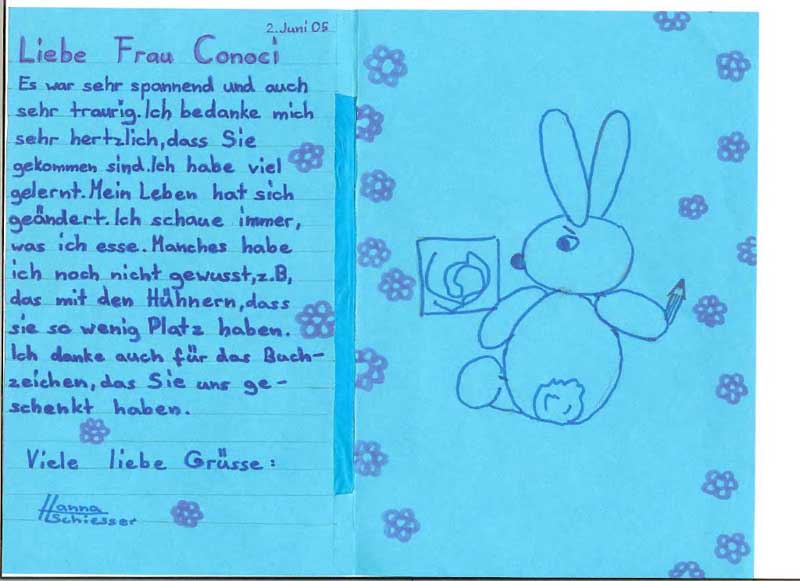 2. Juni 05
Liebe Frau Conoci
Es war sehr spannend und auch
sehr traurig. Ich bedanke mich
sehr hertzlich, dass Sie
gekommen sind. Ich habe viel
gelernt. Mein Leben hat sich
geändert. Ich schaue immer,
was ich esse. Manches habe
ich noch nicht gewusst, z.B,
das mit den Hühnern, dass
sie so wenig Platz haben.
Ich danke auch für das Buch-
zeichen, das Sie uns ge-
schenkt haben.
Viele liebe Grüsse:
Hanna
Schiesser